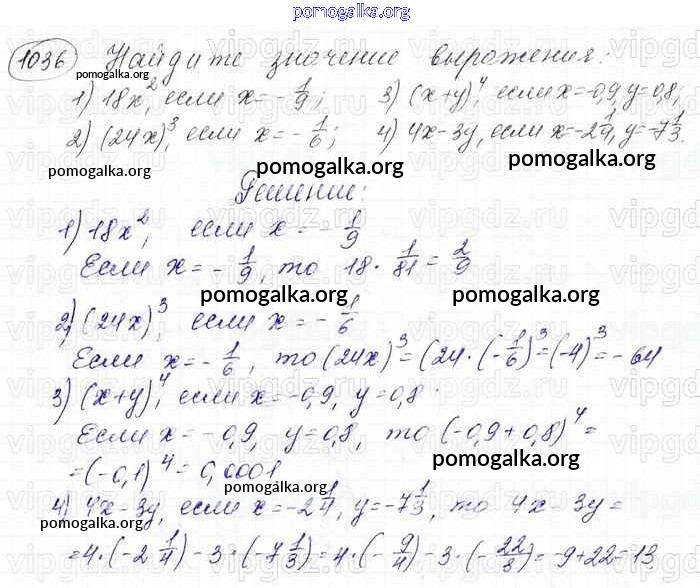 pomogalka.org
1036 Найдите значение выражения:
1) 18x², если x = -1/9; 3) (x+y)⁴, если x=-0,9, y=0,8;
2) (24x)³, если x = -1/6; 4) 4x-3y, если x=-2 1/4, y=-7 1/3.
pomogalka.org
pomogalka.org
pomogalka.org
pomogalka.org
Решение:
1) 18x², если x = -1/9
Если x = -1/9, то 18 · 1/81 = 2/9
pomogalka.org pomogalka.org
2) (24x)³, если x = -1/6
Если x = -1/6, то (24x)³ = (24 · (-1/6)³ = (-4)³ = -64
3) (x+y)⁴, если x = -0,9, y = 0,8.
Если x = -0,9, y = 0,8, то (-0,9 + 0,8)⁴ =
= (-0,1)⁴ = 0,0001
pomogalka.org
pomogalka.org
4) 4x-3y, если x = -2 1/4, y = -7 1/3, то 4x-3y =
pomogalka.org
= 4 · (-2 1/4) - 3 · (-7 1/3) = 4 · (-9/4) - 3 · (-22/3) = -9+22=13.
pomogalka.org